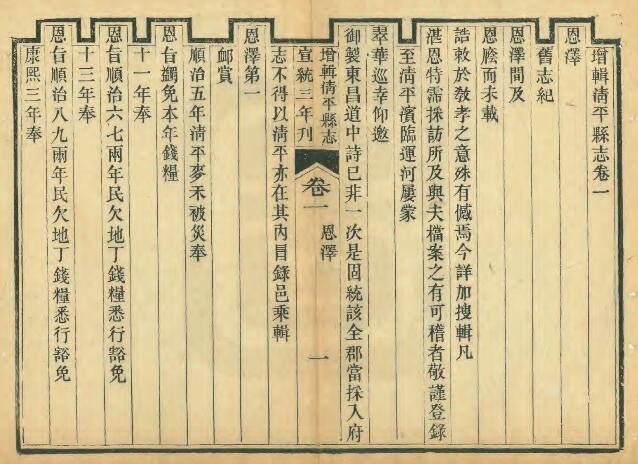 增輯清平縣志卷一
恩澤
舊志紀
恩澤間及
恩賸而未載
誥敕於敎孝之意殊有憾焉今詳加搜輯凡
湛恩特霈採訪所及與夫檔案之有可稽者敬謹登錄
至清平濱臨運河屢蒙
翠華巡幸仰邀
御製東昌道中詩已非一次是固統該全郡當採入府
增輯淸平縣志 卷一 恩澤 一
宣統三年刊
志不得以清平亦在其內冒錄邑乘輯
恩澤第一
卹賞
順治五年清平麥禾被災奉
恩旨蠲免本年錢糧
十一年奉
恩旨順治六七兩年民欠地丁錢糧悉行豁免
十三年奉
恩旨順治八九兩年民欠地丁錢糧悉行豁免
康熙三年奉